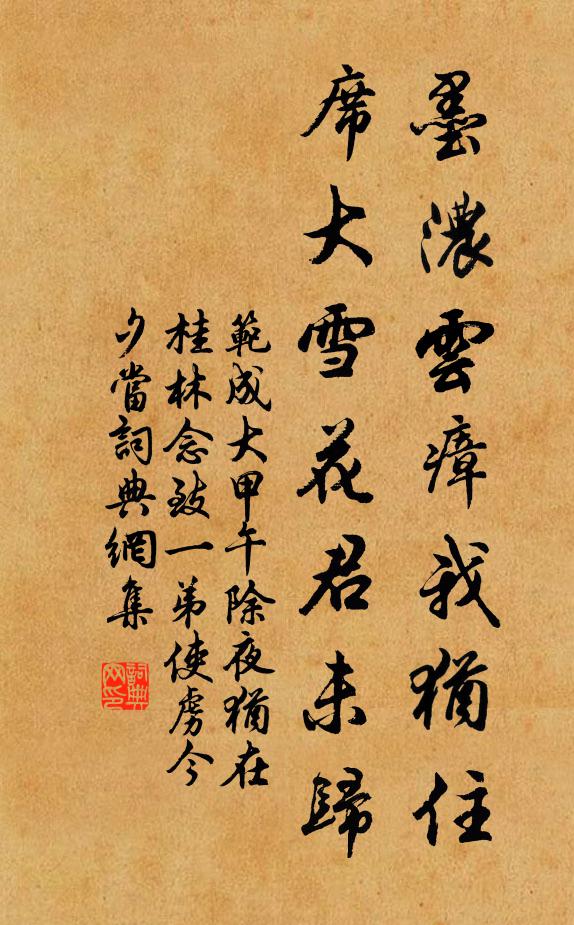 墨濃雲瘴我猶住
席大雪花君未歸
範成大甲午除夜猶在
桂林念致一弟使虜今
夕當詞典網集
詞典
网印